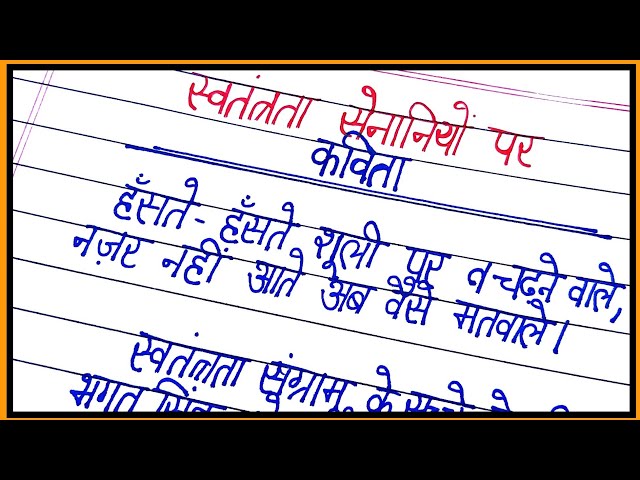 स्वतंत्रता सेनानियों पर
कविता
हँसते-हँसते शूली पर चढ़ने वाले,
नज़र नहीं आते अब वैसे मतवाले।
स्वतंत्रता संग्राम के
भगत सिंह